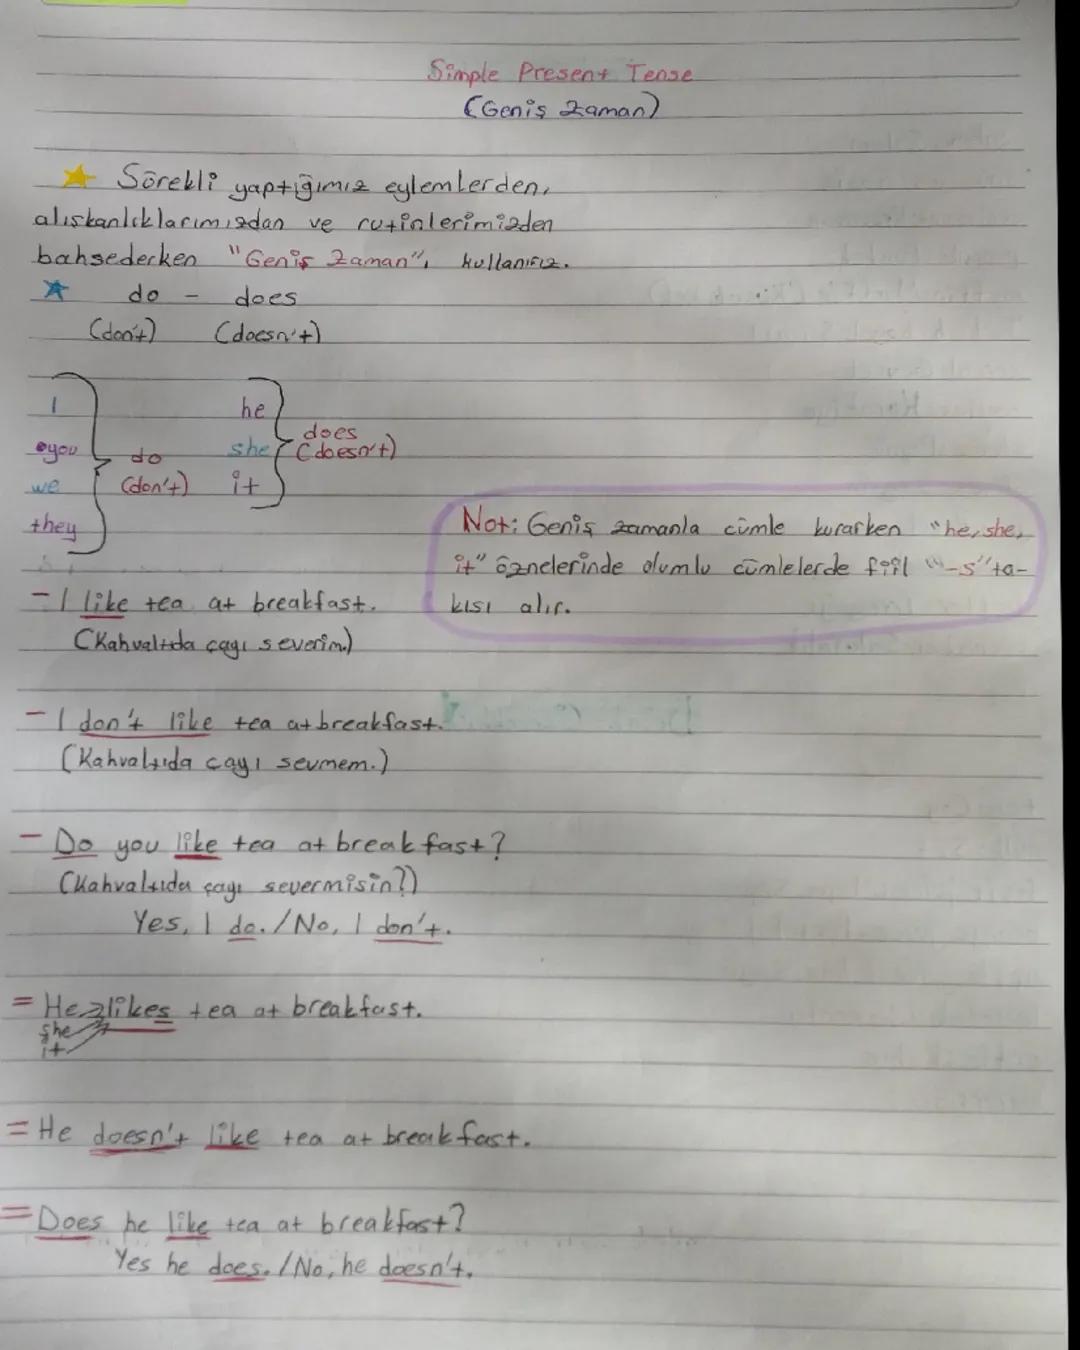 Simple Present Tense
(Geniş Zaman)
Sürekli yaptığımız eylemlerden,
alışkanlıklarımızdan ve rutinlerimizden
bahsederken "Geniş Zaman"ı kullanırız.
do - does
(don't) (doesn't)
I
you
we
they
do
(don't)
he
she
it
does
(doesn't)
Not: Geniş zamanla cümle kurarken "he, she,
it" öznelerinde olumlu cümlelerde fiil "-s" ta-
kısı alır.
- I like tea at breakfast.
(Kahvaltıda çayı severim.)
- I don't like tea at breakfast.
(Kahvaltıda çayı sevmem.)
- Do you like tea at breakfast?
(Kahvaltıda çayı severmisin?)
Yes, I do. / No, I don't.
= He likes tea at breakfast.
she
it
= He doesn't like tea at breakfast.
= Does he like tea at breakfast?
Yes he does. / No, he doesn't.